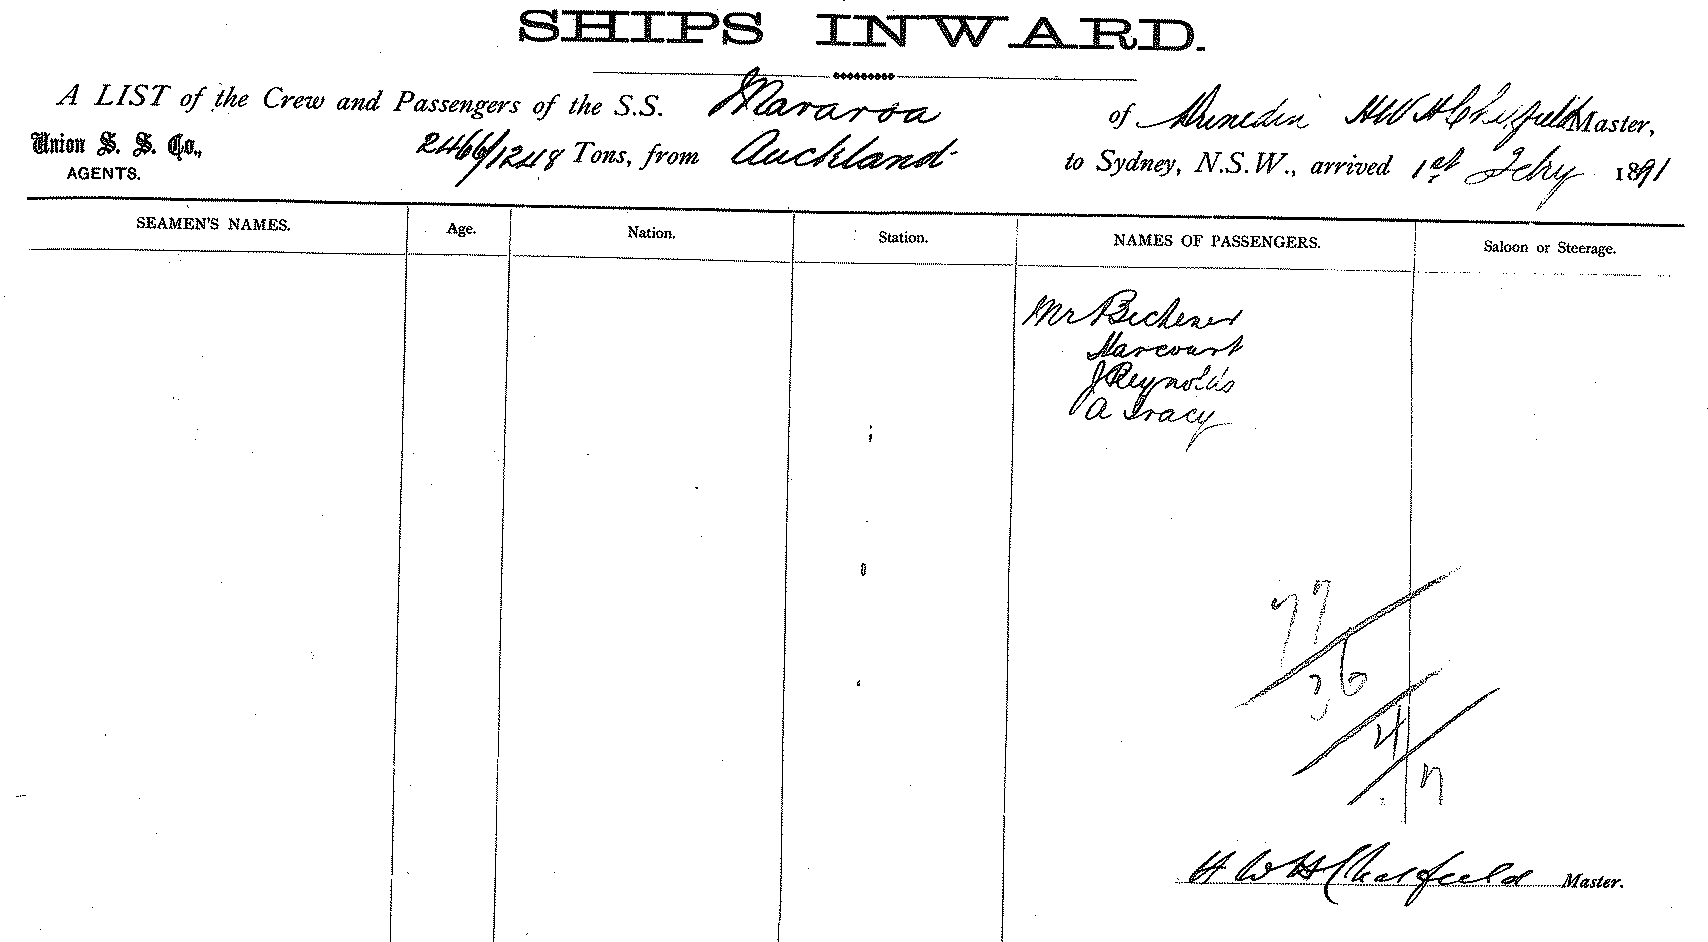 SHIPS INWARD.
A LIST of the Crew and Passengers of the S.S. Mararoa of Dunedin H W H Chatfield Master,
Union S. S. Co., 2466/1248 Tons, from Auckland to Sydney, N.S.W., arrived 1st Feby 1891
AGENTS.
SEAMEN'S NAMES. Age. Nation. Station. NAMES OF PASSENGERS. Saloon or Steerage.
Mr Bechener
Harcourt
J Reynolds
A Tracy
77
36
4/7
H W H Chatfield Master.